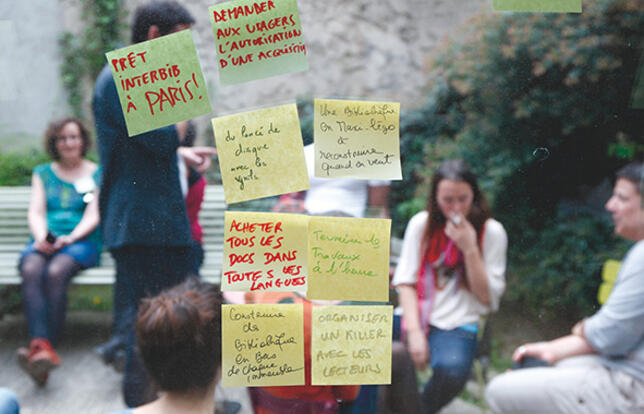 DEMANDER
AUX USAGERS
L'AUTORISATION
D'UNE ACQUISITI
PRÊT
INTERBIB
À PARIS!
du lancé de
disque
avec les
Une Bibliothèque
en
reconstruire
quand on veut
ACHETER
TOUS LES
DOCS DANS
TOUTES LES
LANGUES
Terminer les
travaux
à l'heure
Construire des
Bibliothèque
en Bas
de chaque
immeuble
ORGANISER
UN KILLER
AVEC LES
LECTEURS